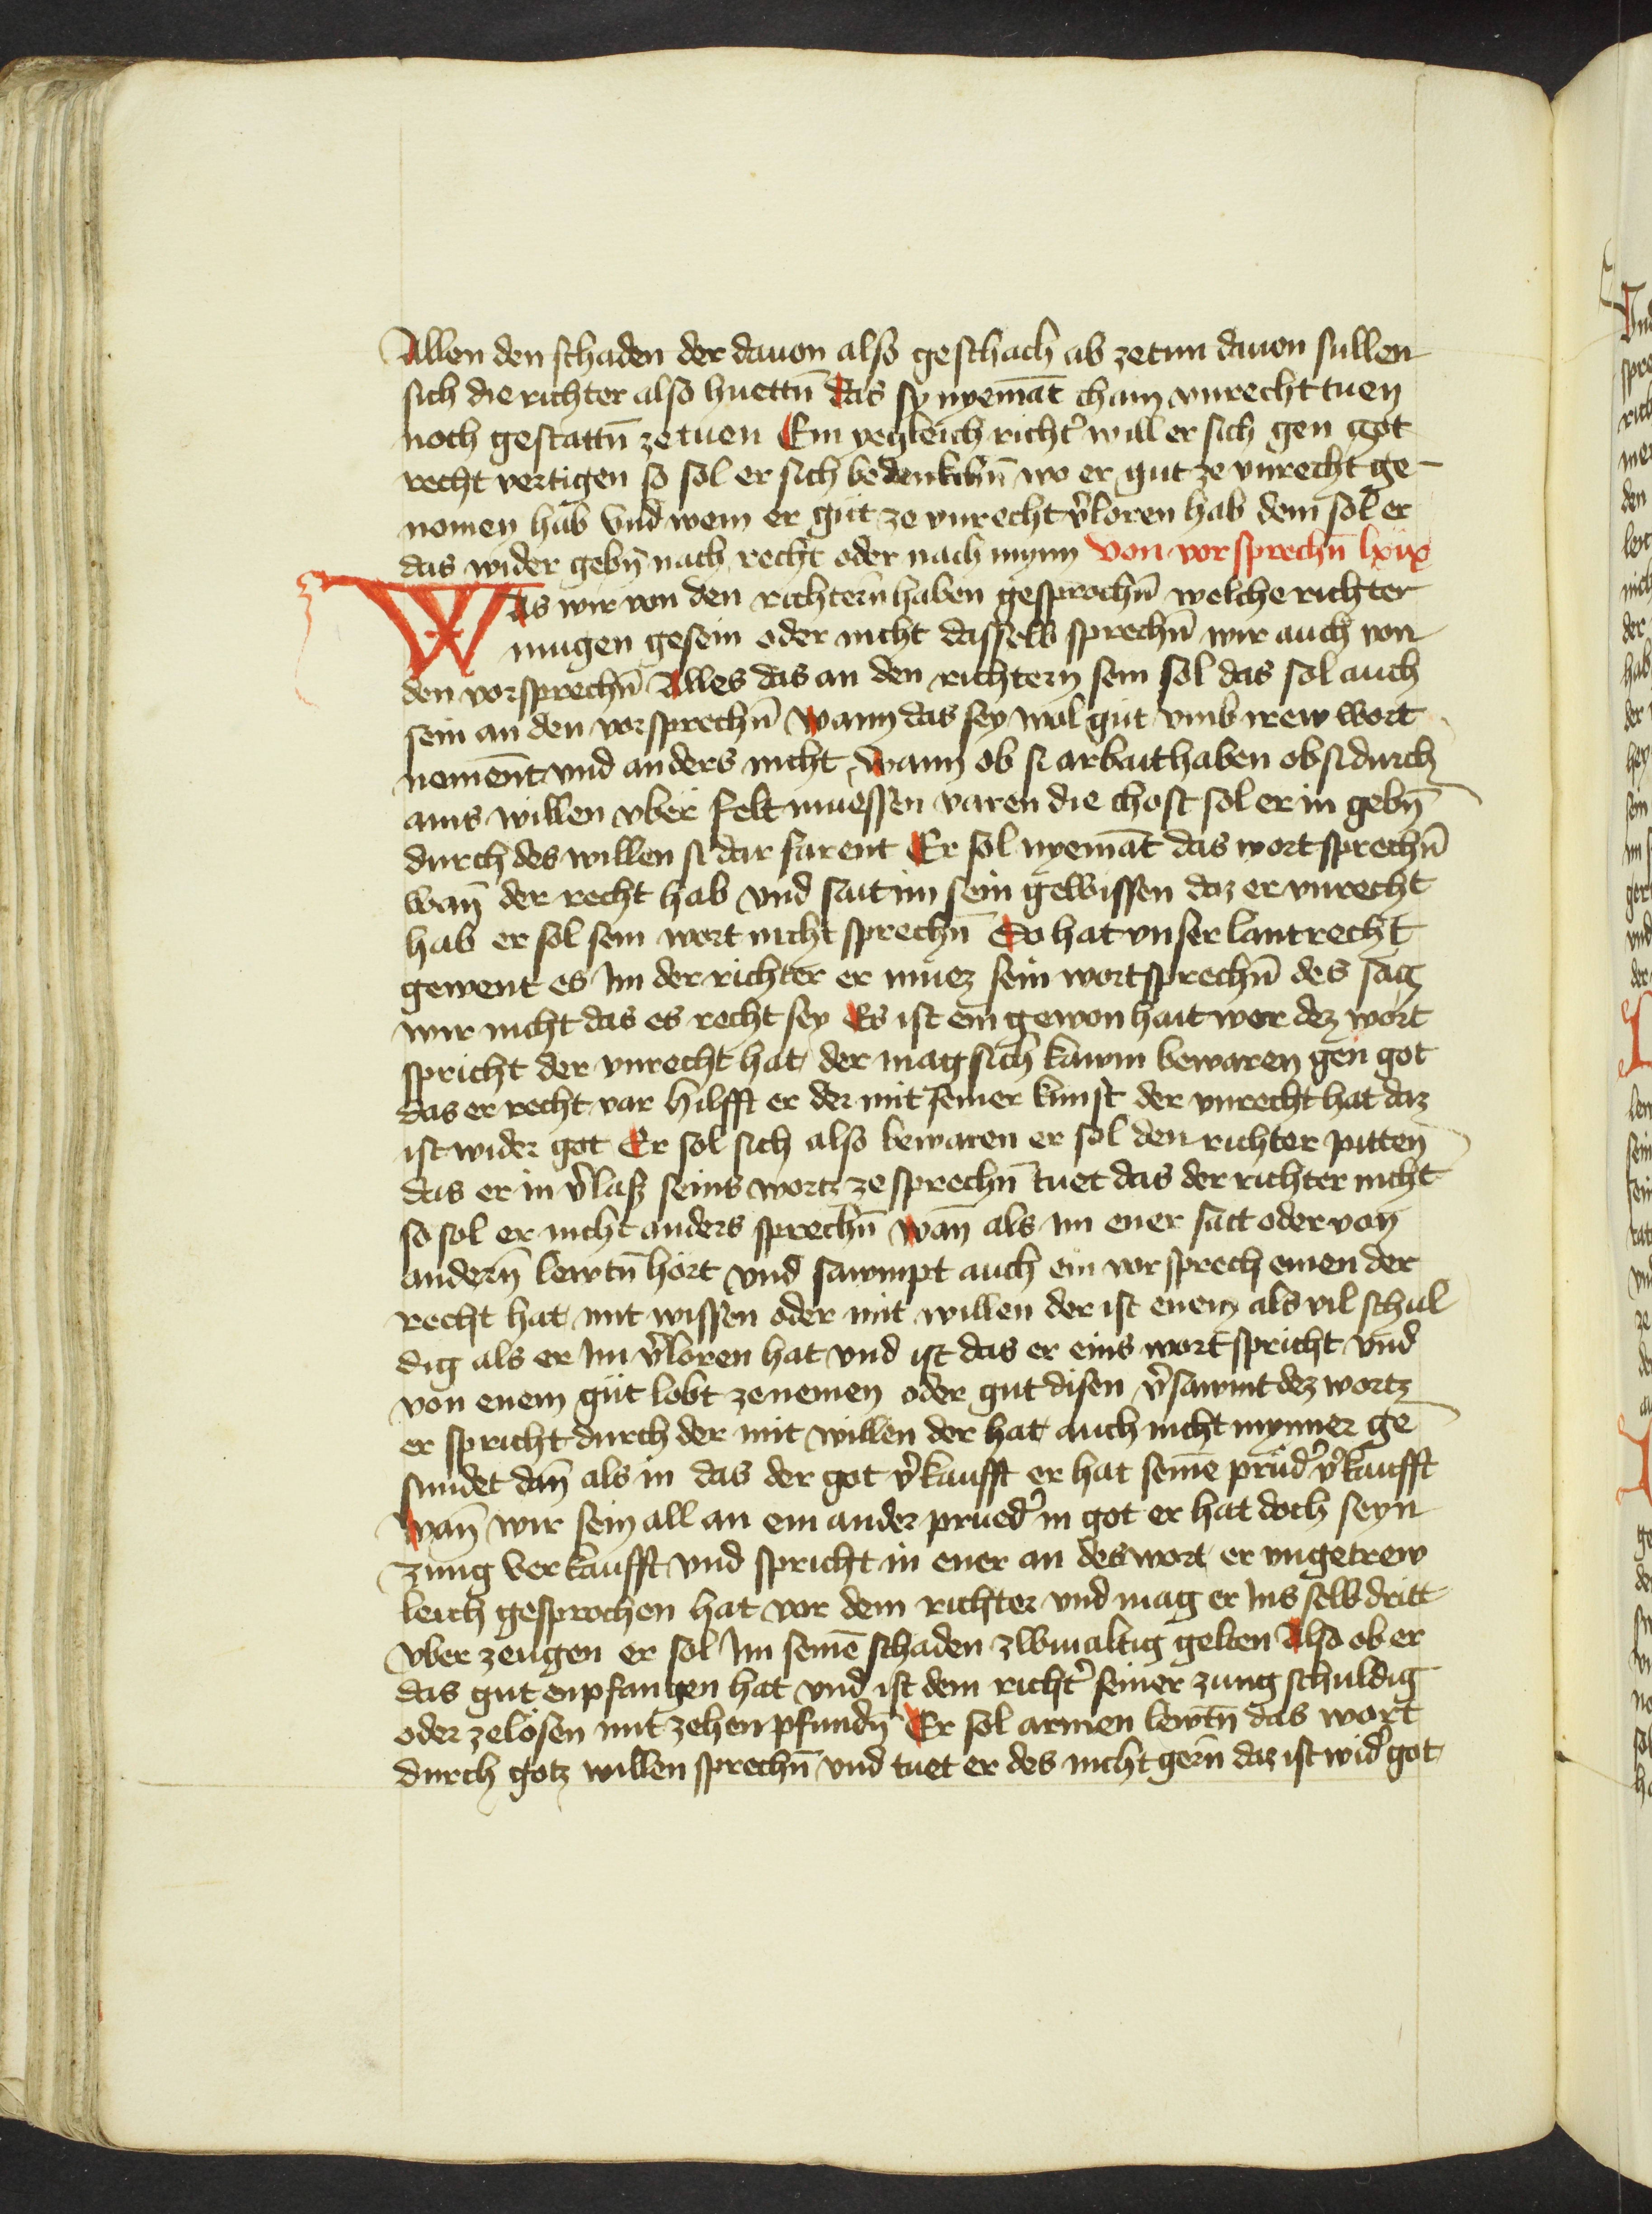 Allen den schaden der dauon also geschach ab zetun dauon sullen
sich die richter also huettn̄ das sy nyemāt cham vnrecht tuen
noch gestattn̄ ze tuen Ein yegleich richt̉ will er sich gen got
recht vertigen so sol er sich bedenkchn̄ wo er gut ze vnrecht ge-
nomen hab vnd wem er gut ze vnrecht v̉loren hab dem sol er
das wider gebn̄ nach recht oder nach mynn Von vorsprechn̄ lxxx
Was wir von den richtern̄ haben gesprochn̄ welche richter
mugen gesein oder nicht dasselb sprechn̄ wir auch von
den vorsprechn̄ Alles das an den richtern sein sol das sol auch
sein an den vorsprechn̄ wann das sey wol gut vmb irew wort
nement vnd anders nicht wann ob si arbait haben ob si durch
ains willen vber felt muessen varen die chost sol er in gebn̄
durch des willen si dar farent Er sol nyemāt das wort sprechn̄
wan̄ der recht hab vnd sait im sein gewissen daz er vnrecht
hab er sol sein wort nicht sprechn̄ Do hat vnser lantrecht
gewent es im der richter er muez sein wort sprechn̄ des sag
wir nicht das es recht sey Es ist ein gewonhait wer dez wort
spricht der vnrecht hat der mag sich kawm bewaren gen got
das er recht var hilfft er der mit seiner kunst der vnrecht hat daz
ist wider got Er sol sich also bewaren er sol den richter pitten
das er in v̉laß seins wortz ze sprechn̄ tuet das der richter nicht
so sol er nicht anders sprechn̄ wan̄ als im ener satt oder von
andern̄ lewtn̄ hort vnd sawmpt auch ein vorsprech einen der
recht hat mit wissen oder mit willen der ist enem als vil schul
dig als er im v̉loren hat vnd ist das er eins wort spricht vnd
von enem gut lobt ze nemen oder gut disen v̉sawmt dez wortz
er spricht durch der mit willen der hat auch nicht mynner ge
sundet dan̄ als in das der got v̉kaufft er hat seinē prud̉ v̉kaufft
wan̄ wir sein all an ein ander prued̉ in got er hat doch seyn
zung verkaufft vnd spricht in ener an des wort er vngetrew
leich gesprochen hat vor dem richter vnd mag er ins selb dritt
vber zeugen er sol im seinē schaden zwiualtig gelten Also ob er
das gut enpfangen hat vnd ist dem richt̉ seiner zung schuldig
oder ze lösen mit zehen pfundn̄ Er sol armen lewtn̄ das wort
durch gotz willen sprechn̄ vnd tuet er des nicht gern̄ daz ist wid̉ got